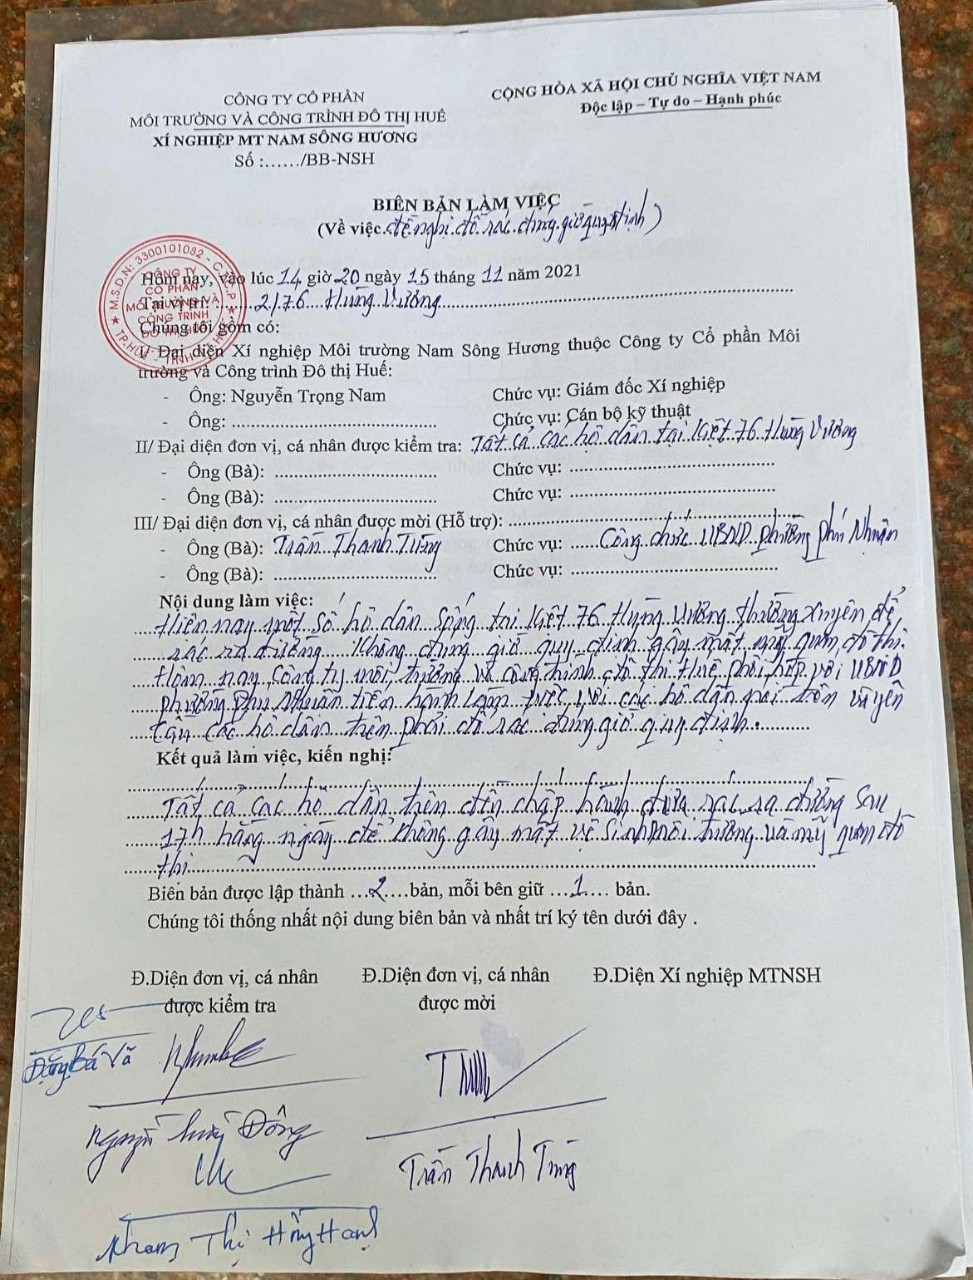 CÔNG TY CỔ PHẦN
MÔI TRƯỜNG VÀ CÔNG TRÌNH ĐÔ THỊ HUẾ
XÍ NGHIỆP MT NAM SÔNG HƯƠNG
Số :....../BB-NSH
CỘNG HÒA XÃ HỘI CHỦ NGHĨA VIỆT NAM
Độc lập – Tự do – Hạnh phúc
BIÊN BẢN LÀM VIỆC
(Về việc đề nghị đổ rác đúng giờ quy định)
M.S.D.N: 3300101082 - C.T.C.P
CÔNG TY
CỔ PHẦN
MÔI TRƯỜNG VÀ
CÔNG TRÌNH
ĐÔ THỊ HUẾ
Hôm nay, vào lúc 14 giờ 20 ngày 15 tháng 11 năm 2021
Tại vị trí: 2/76 Hùng Vương
Chúng tôi gồm có:
I/ Đại diện Xí nghiệp Môi trường Nam Sông Hương thuộc Công ty Cổ phần Môi
trường và Công trình Đô thị Huế:
- Ông: Nguyễn Trọng Nam Chức vụ: Giám đốc Xí nghiệp
- Ông: Chức vụ: Cán bộ kỹ thuật
II/ Đại diện đơn vị, cá nhân được kiểm tra: Tất cả các hộ dân tại kiệt 76 Hùng Vương
- Ông (Bà): Chức vụ:
- Ông (Bà): Chức vụ:
III/ Đại diện đơn vị, cá nhân được mời (Hỗ trợ):
- Ông (Bà): Trần Thanh Tùng Chức vụ: Công chức UBND phường Phú Nhuận
- Ông (Bà): Chức vụ:
Nội dung làm việc:
Hiện nay một số hộ dân sống tại kiệt 76 Hùng Vương thường xuyên để
rác ra đường không đúng giờ quy định gây mất mỹ quan đô thị.
Hôm nay, Công ty môi trường và công trình đô thị Huế phối hợp với UBND
phường Phú Nhuận tiến hành làm việc với các hộ dân nói trên và yêu
cầu các hộ dân trên phải đổ rác đúng giờ quy định.
Kết quả làm việc, kiến nghị:
Tất cả các hộ dân trên đều chấp hành đưa rác ra đường sau
17h hằng ngày để không gây mất vệ sinh môi trường và mỹ quan đô
thị
Biên bản được lập thành 2 bản, mỗi bên giữ 1 bản.
Chúng tôi thống nhất nội dung biên bản và nhất trí ký tên dưới đây .
Đ.Diện đơn vị, cá nhân
được kiểm tra
Đ.Diện đơn vị, cá nhân
được mời
Đ.Diện Xí nghiệp MTNSH
Đặng Bá Vã
Nguyễn Đông
Trần Thanh Tùng
Phạm Thị Hồng Hạnh